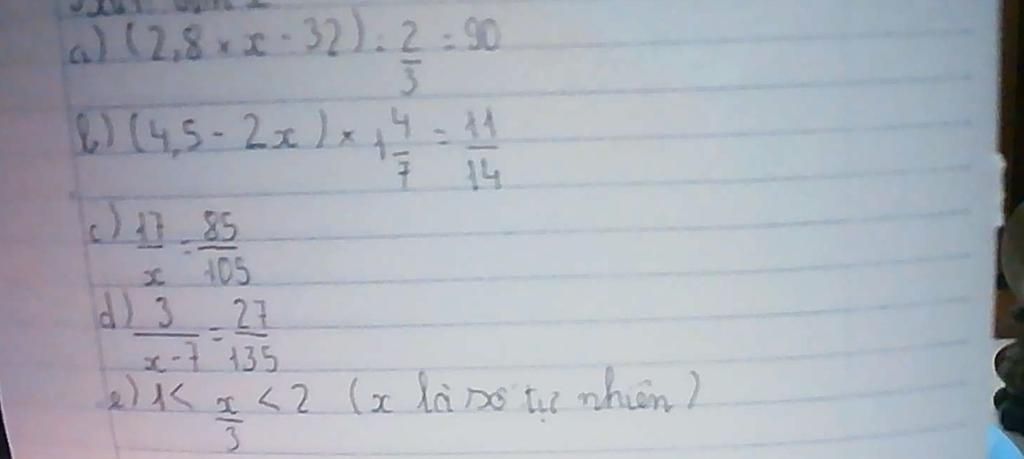 a) (2,8 × x - 32) : 2/3 = 90
b) (4,5 - 2x) × 1 4/7 = 11/14
c) 17/x = 85/105
d) 3/(x-7) = 27/135
e) 1 < x/3 < 2 (x là số tự nhiên)